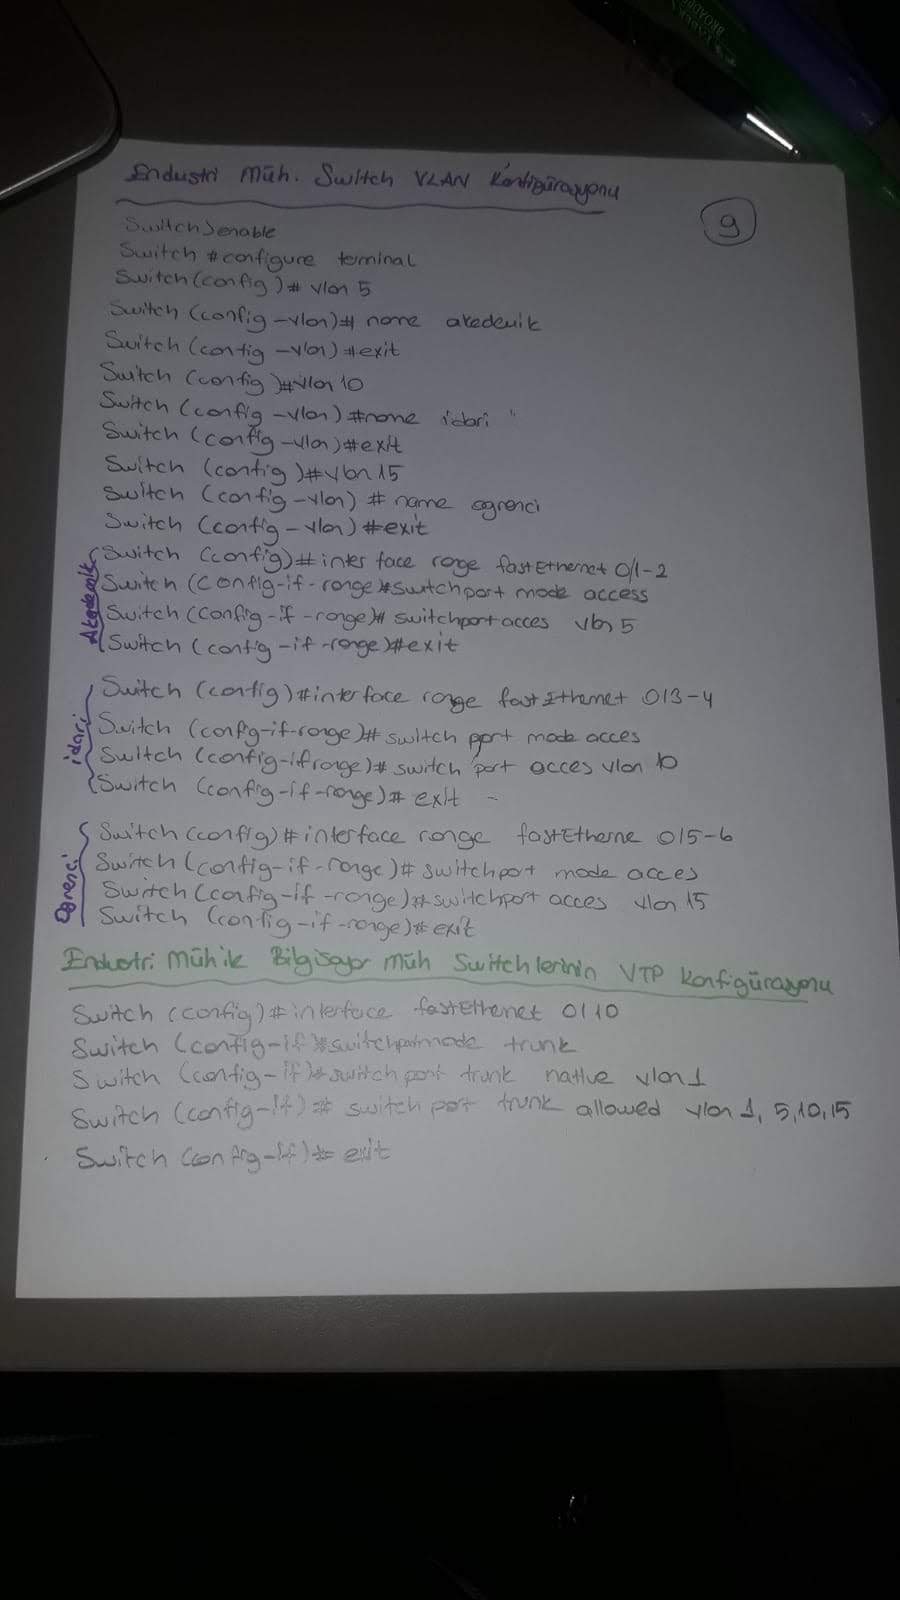 Endustri Müh. Switch VLAN Konfigürasyonu
9
Switch>enable
Switch #configure terminal
Switch(config)# vlan 5
Switch (config-vlan)# name akedemik
Switch (config-vlan)#exit
Switch (config)#vlan 10
Switch (config-vlan)#name idari
Switch (config-vlan)#exit
Switch (config)#vlan 15
Switch (config-vlan) # name ogrenci
Switch (config-vlan)#exit
Akademik
Switch (config)#interface range fastEthernet 0/1-2
Switch (Config-if-range)#switchport mode access
Switch (config-if-range)# switchport acces vlan 5
Switch (config-if-range)#exit
idari
Switch (config)#interface range fastEthernet 0/3-4
Switch (config-if-range)# switch port mode acces
Switch (config-if range)# switch port acces vlan 10
Switch (config-if-range)# exit
Ogrenci
Switch (config)#interface range fastEtherne 0/5-6
Switch (config-if-range)# switchport mode acces
Switch (config-if-range)#switchport acces vlan 15
Switch (config-if-range)#exit
Endustri Müh ile Bilgisayar Müh Switchlerinin VTP Konfigürasyonu
Switch (config)#interface fastEthernet 0/10
Switch (config-if)#switchportmode trunk
Switch (config-if)#switch port trunk native vlan 1
Switch (config-if)# switch port trunk allowed vlan 1, 5,10,15
Switch (config-if)# exit